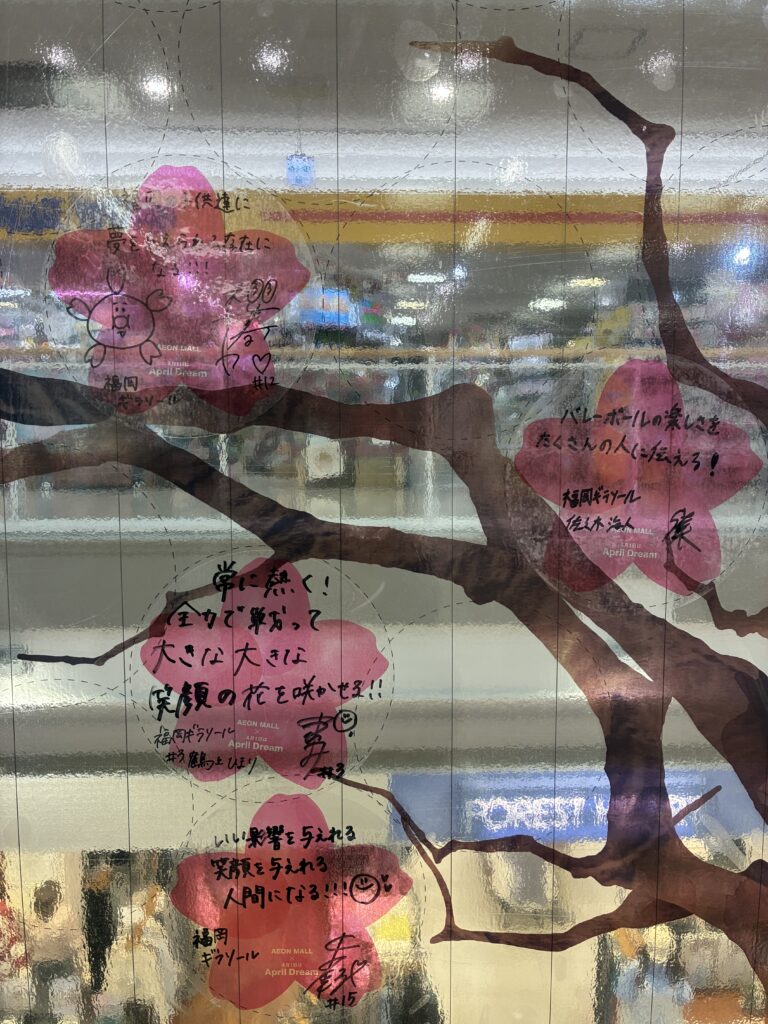 供達に
夢を
なる!!!
AEON MALL
April Dream
福岡
ギラソール
#12
バレーボールの楽しさを
たくさんの人に伝える!
福岡ギラソール
佐々木
AEON MALL
April Dream
常に熱く!
全力で戦って
大きな大きな
笑顔の花を咲かせる!!
AEON MALL
×
April Dream
福岡ギラソール
#3 鶴上 ひまり
#3
FOREST
いい影響を与えれる
笑顔を与えれる
人間になる!!!
福岡
ギラソール
AEON MALL
×
April Dream
#15